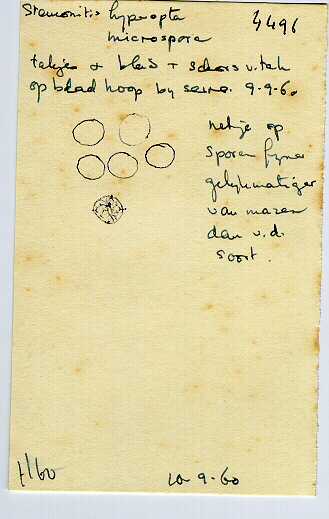 Stemonitis hyperopta 4496
microspora
takjes + blad + schors v. tak
op blad hoop by serre. 9-9-60
netje op
sporen fyner
gelykmatiger
van mazen
dan v.d.
soort.
10-9-60